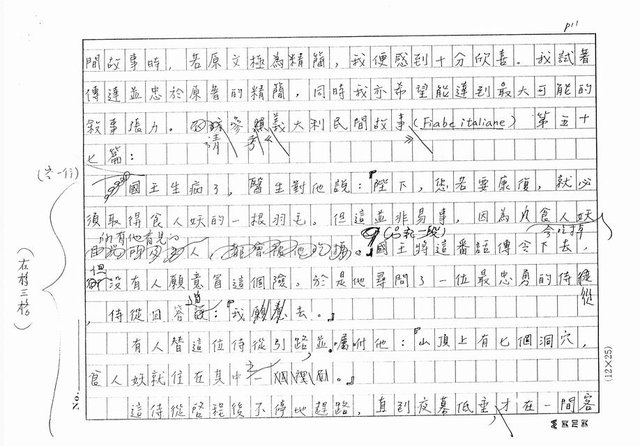 p11
間故事時，若原文極為精簡，我便感到十分欣喜。我試著
傳達並忠於原著的精簡，同時我亦希望能達到最大可能的
敘事張力。請參《義大利民間故事》(Fiabe italiane) 第五十
七篇：
(空一行)
國王生病了，醫生對他說：『陛下，您若要康復，就必
須取得食人妖的一根羽毛。但這並非易事，因為食人妖
所有他看見的人，
會吃掉
(另起一段)
國王將這番話傳令下去，
但沒有人願意冒這個險，於是他尋問了一位最忠勇的侍從
侍從回答道：『我去。』
有人替這位侍從引路並囑咐他：『山頂上有七個洞穴，
食人妖就住在其中之一。』
這侍從啓程後不停地趕路，直到夜幕低垂，才在一間客
(右移三格)
No.
(12×25)